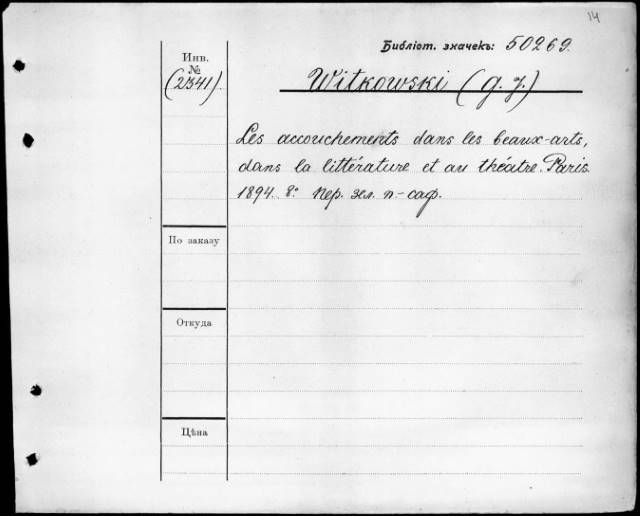 14
Библіот. значекъ: 50269.
Инв.
№
(2341)
Witkowski (G. J.)
Les accouchements dans les beaux-arts,
dans la littérature et au théatre. Paris.
1894. 8°. Пер. зел. п.-саф.
По заказу
Откуда
Цѣна